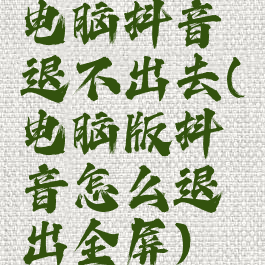 电脑抖音
退不出去(
电脑版抖
音怎么退
出全屏)